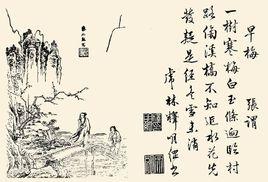 早梅 張謂
一樹寒梅白玉條迥臨村
路傍溪橋不知近水花先
發疑是經冬雪未消
虎林